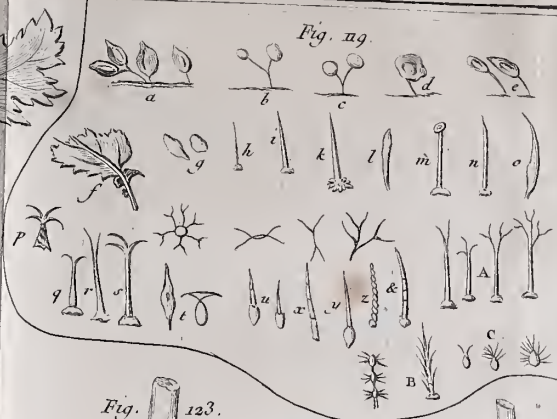 Fig. 119.
a b c d e
f g h i k l m n o
p
q r s t u x y z & A
B C
Fig. 123.